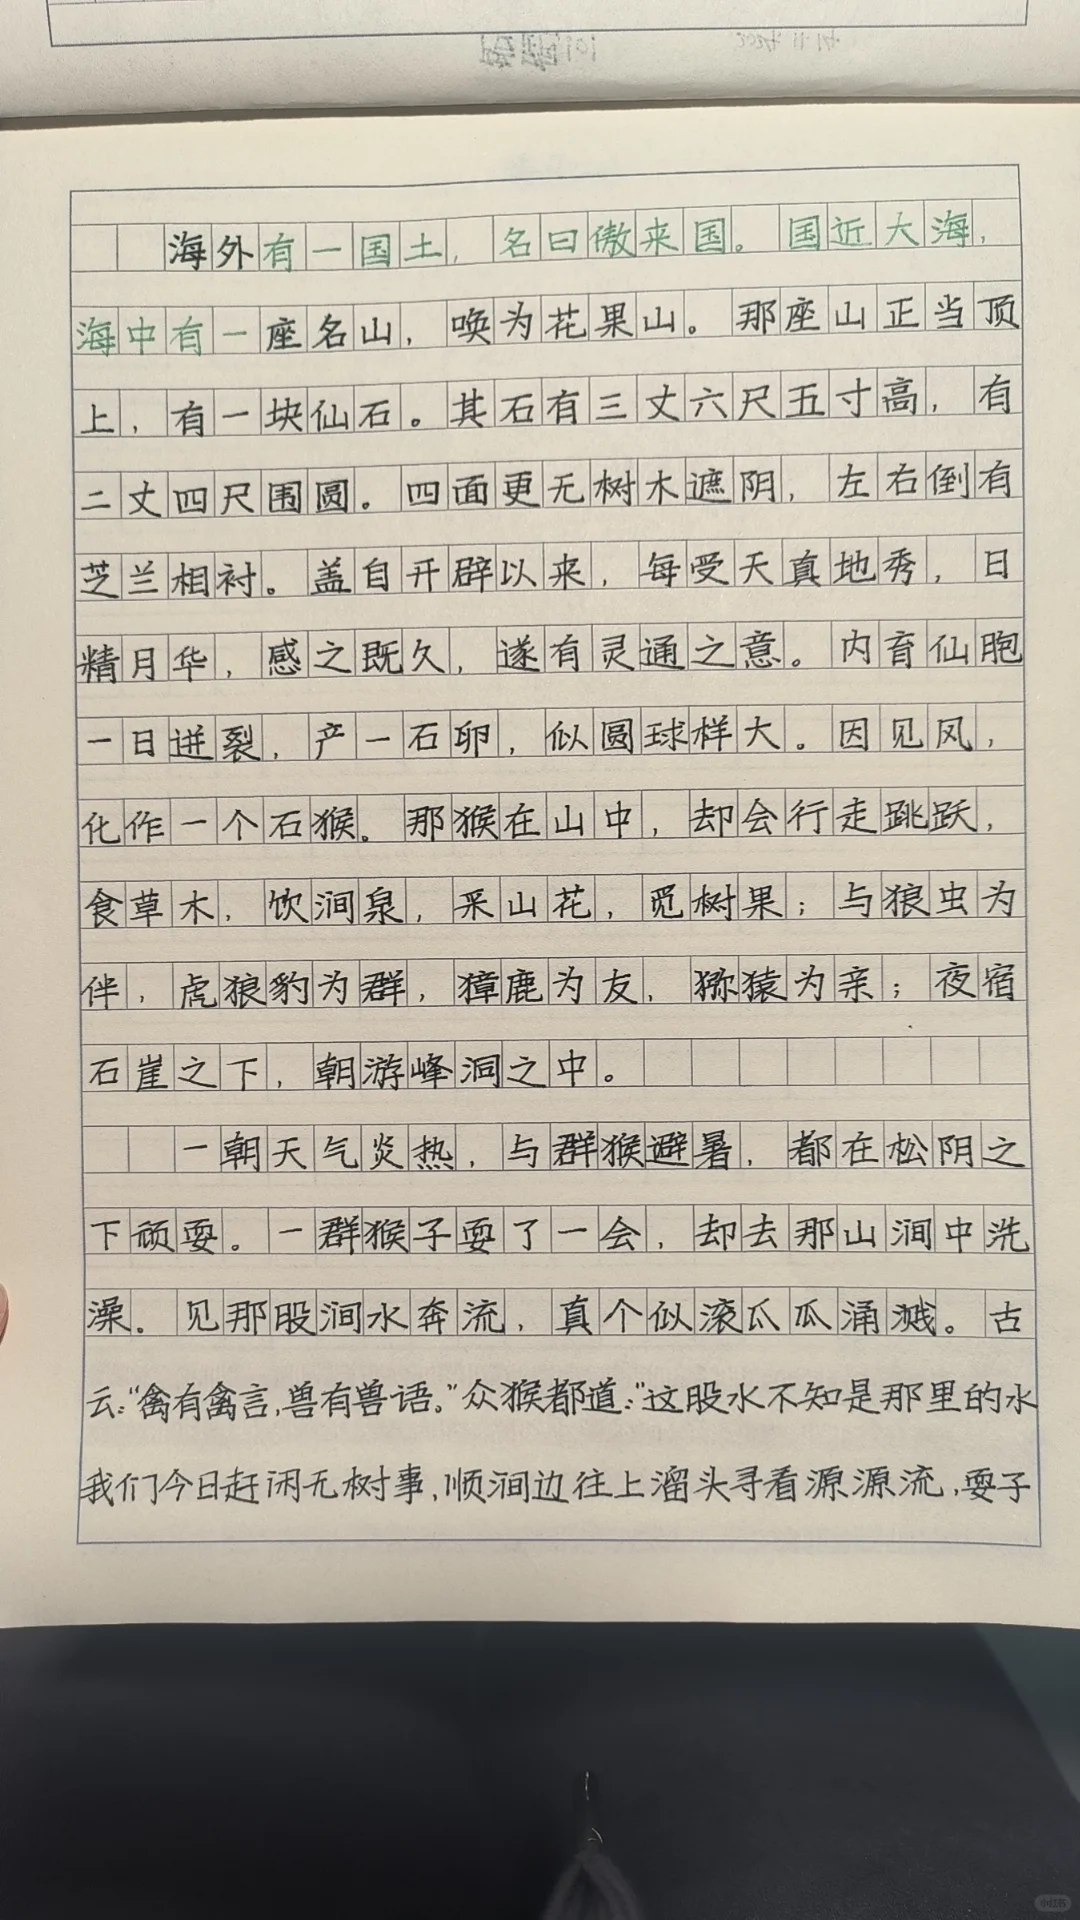 海外有一国土，名曰傲来国。国近大海，
海中有一座名山，唤为花果山。那座山正当顶
上，有一块仙石。其石有三丈六尺五寸高，有
二丈四尺围圆。四面更无树木遮阴，左右倒有
芝兰相衬。盖自开辟以来，每受天真地秀，日
精月华，感之既久，遂有灵通之意。内育仙胞
一日迸裂，产一石卵，似圆球样大。因见风，
化作一个石猴。那猴在山中，却会行走跳跃，
食草木，饮涧泉，采山花，觅树果；与狼虫为
伴，虎狼豹为群，獐鹿为友，猕猿为亲；夜宿
石崖之下，朝游峰洞之中。
一朝天气炎热，与群猴避暑，都在松阴之
下顽耍。一群猴子耍了一会，却去那山涧中洗
澡。见那股涧水奔流，真个似滚瓜瓜涌溅。古
云："禽有禽言，兽有兽语。"众猴都道："这股水不知是那里的水
我们今日赶闲无树事，顺涧边往上溜头寻看源源流，耍子